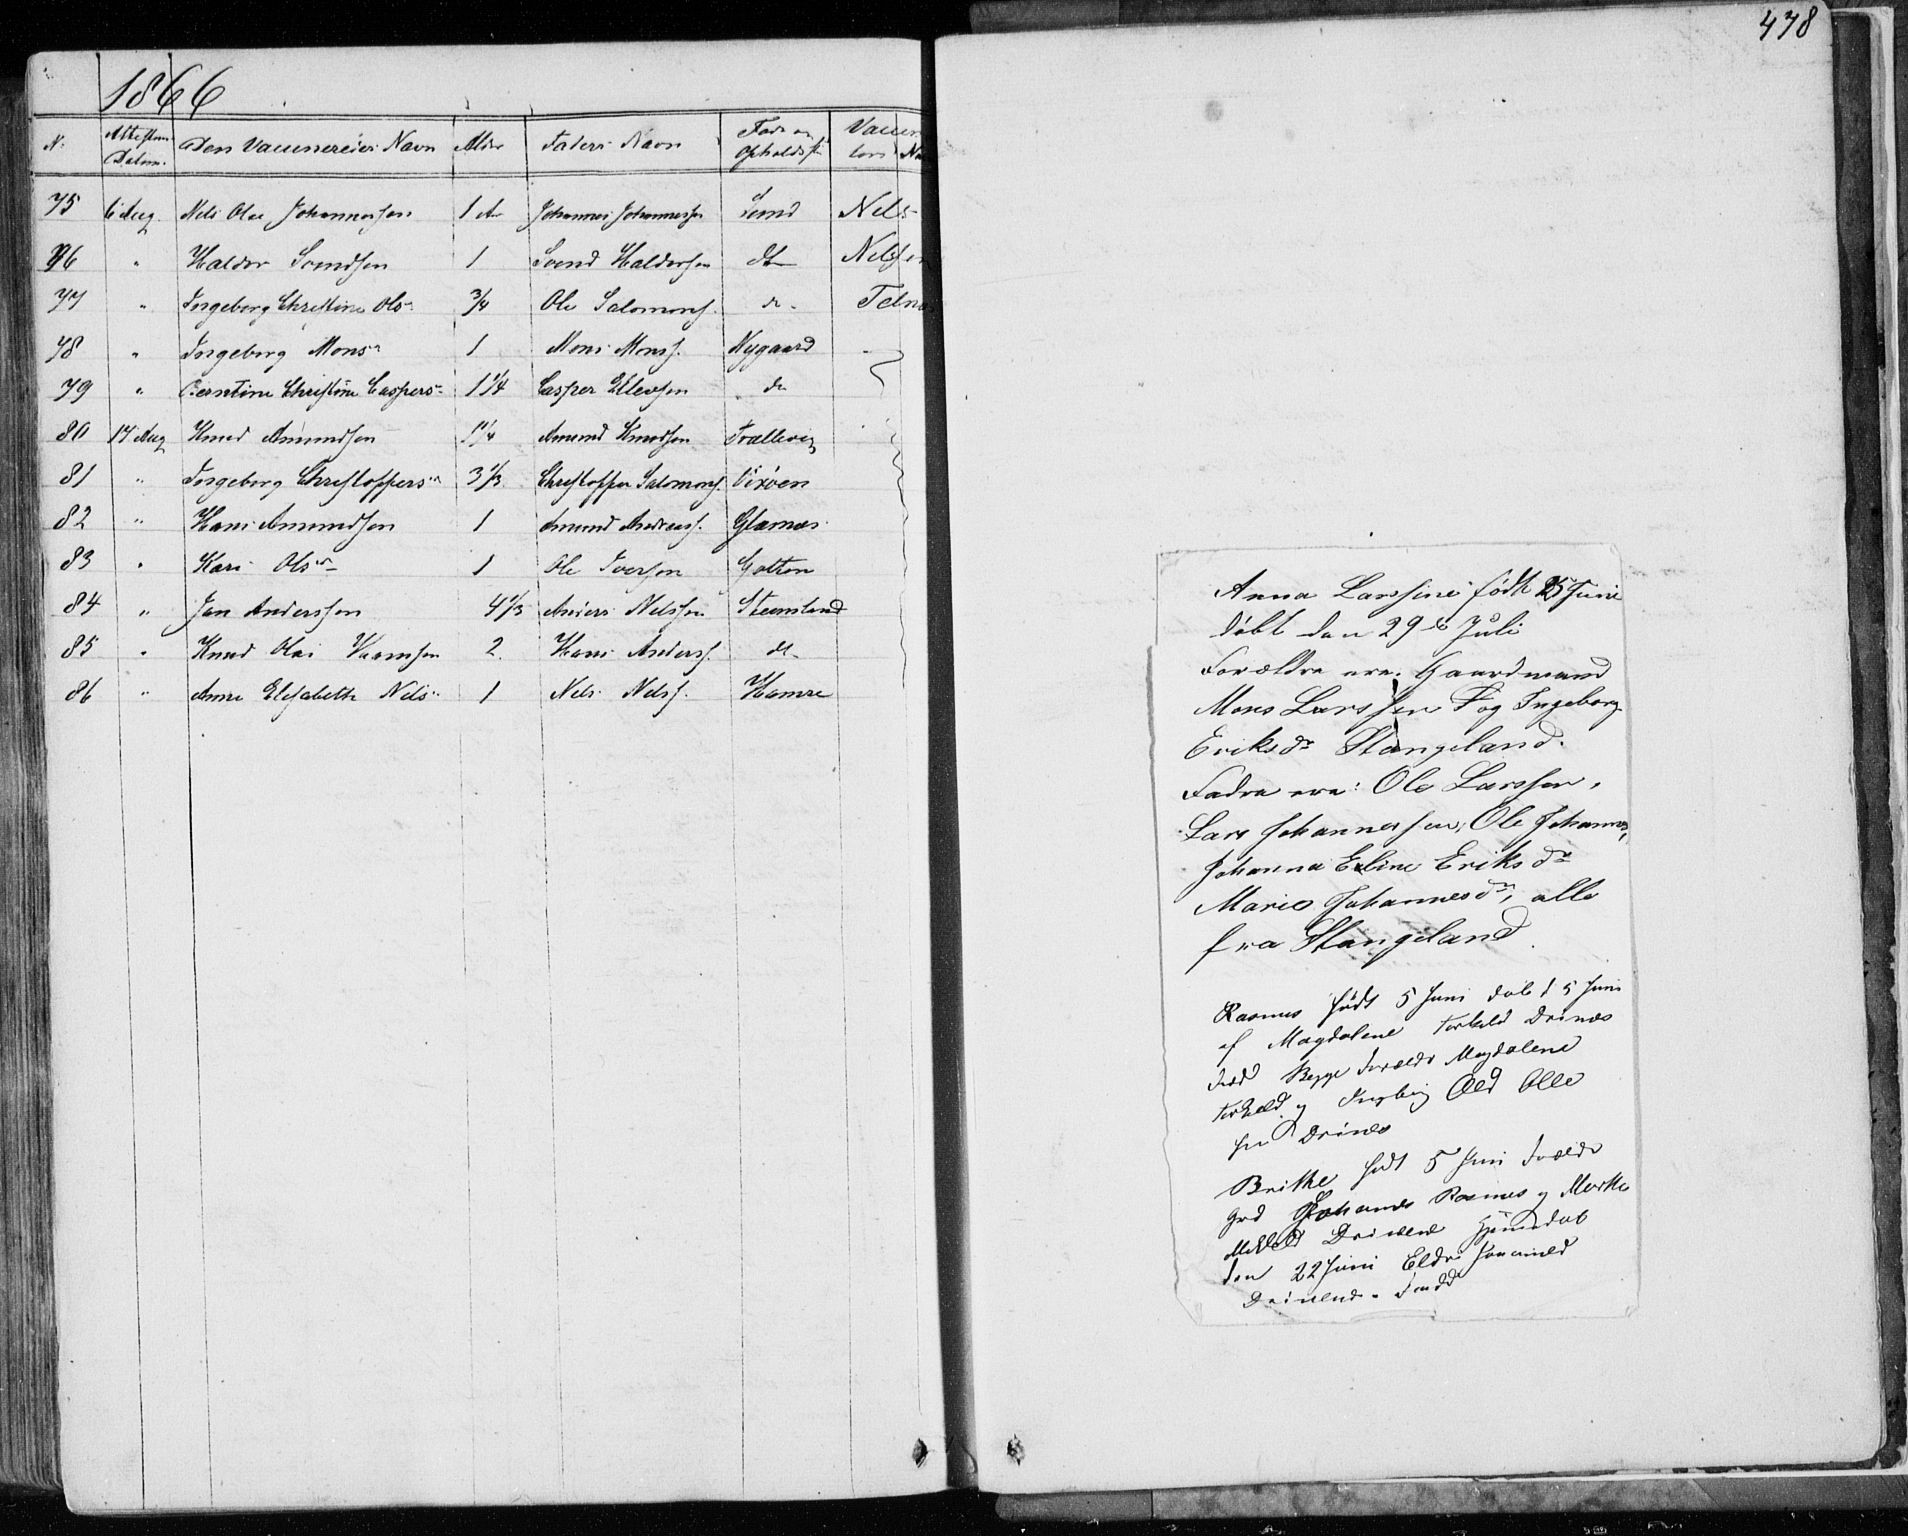 1866
N. Attestens Datum. Den Vaccineredes Navn Alder Faders Navn Føde og Opholdsst Vaccina tors Na
75 6 Aug. Nels Olai Johannessen 1 Aar Johannes Johannessen Sund Nels
76 " Haldor Svendsen 1 Svend Haldorsen do Nelssen
77 " Ingeborg Christine Olsdr 3/4 Ole Salomons. do Telnæs
78 " Ingeborg Monsdr 1 Mons Mons. Nygaard "
79 " Berntine Christine Caspersdr 1 1/4 Casper Ellevsen do
80 17 Aug Knud Amundsen 1 1/4 Amund Knudsen Trællevig
81 " Ingeborg Christoffersdr 3 1/3 Christoffer Salomons. Vixøen
82 " Hans Amundsen 1 Amund Andreass. Glæsnæs
83 " Kari Olsdr 1 Ole Iversen Golten
84 " Jan Anderssen 4 1/3 Anders Nelssen Steensland
85 " Knud Olai Hanssen 2 Hans Anderss. do
86 " Anne Elisabeth Nelsdr 1 Nels Nelss. Hamre
478
Anna Larssine født 25 Juni
døbt den 29de Juli
Forældre ere: Gaardmand
Mons Larssen og Ingeborg
Eriksdr Stangeland.
Fadre ere: Ole Larssen,
Lars Johannessen, Ole Johannes,
Johanna Eline Eriksdr
Marie Johannesdr, alle
fra Stangeland.
Rasmus født 5 Juni døbt 5 Juni
af Magdalene Torkeld Drinæs
Fadd Begge Forældr Magdalene
Torkeld og Ingbor Old Olle
fra Drinæs
Brithe født 5 Juni Foreldr
Grd Johannes Rasmus og Marthe
Drinene Hjemedøb
den 22 Juni Eldri
Drinene. Fadd